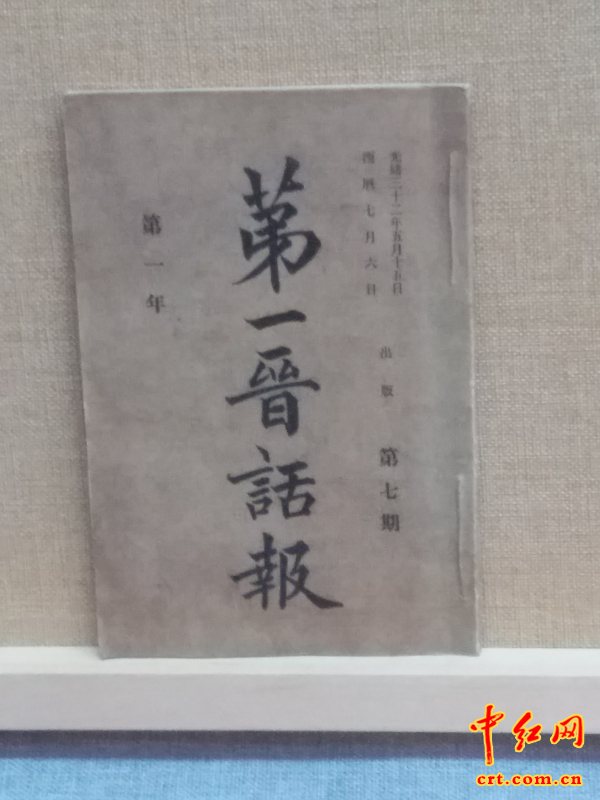 光緒三十二年五月十五日
西曆七月六日
出版
第七期
第一晉話報
第一年
中红网
crt.com.cn